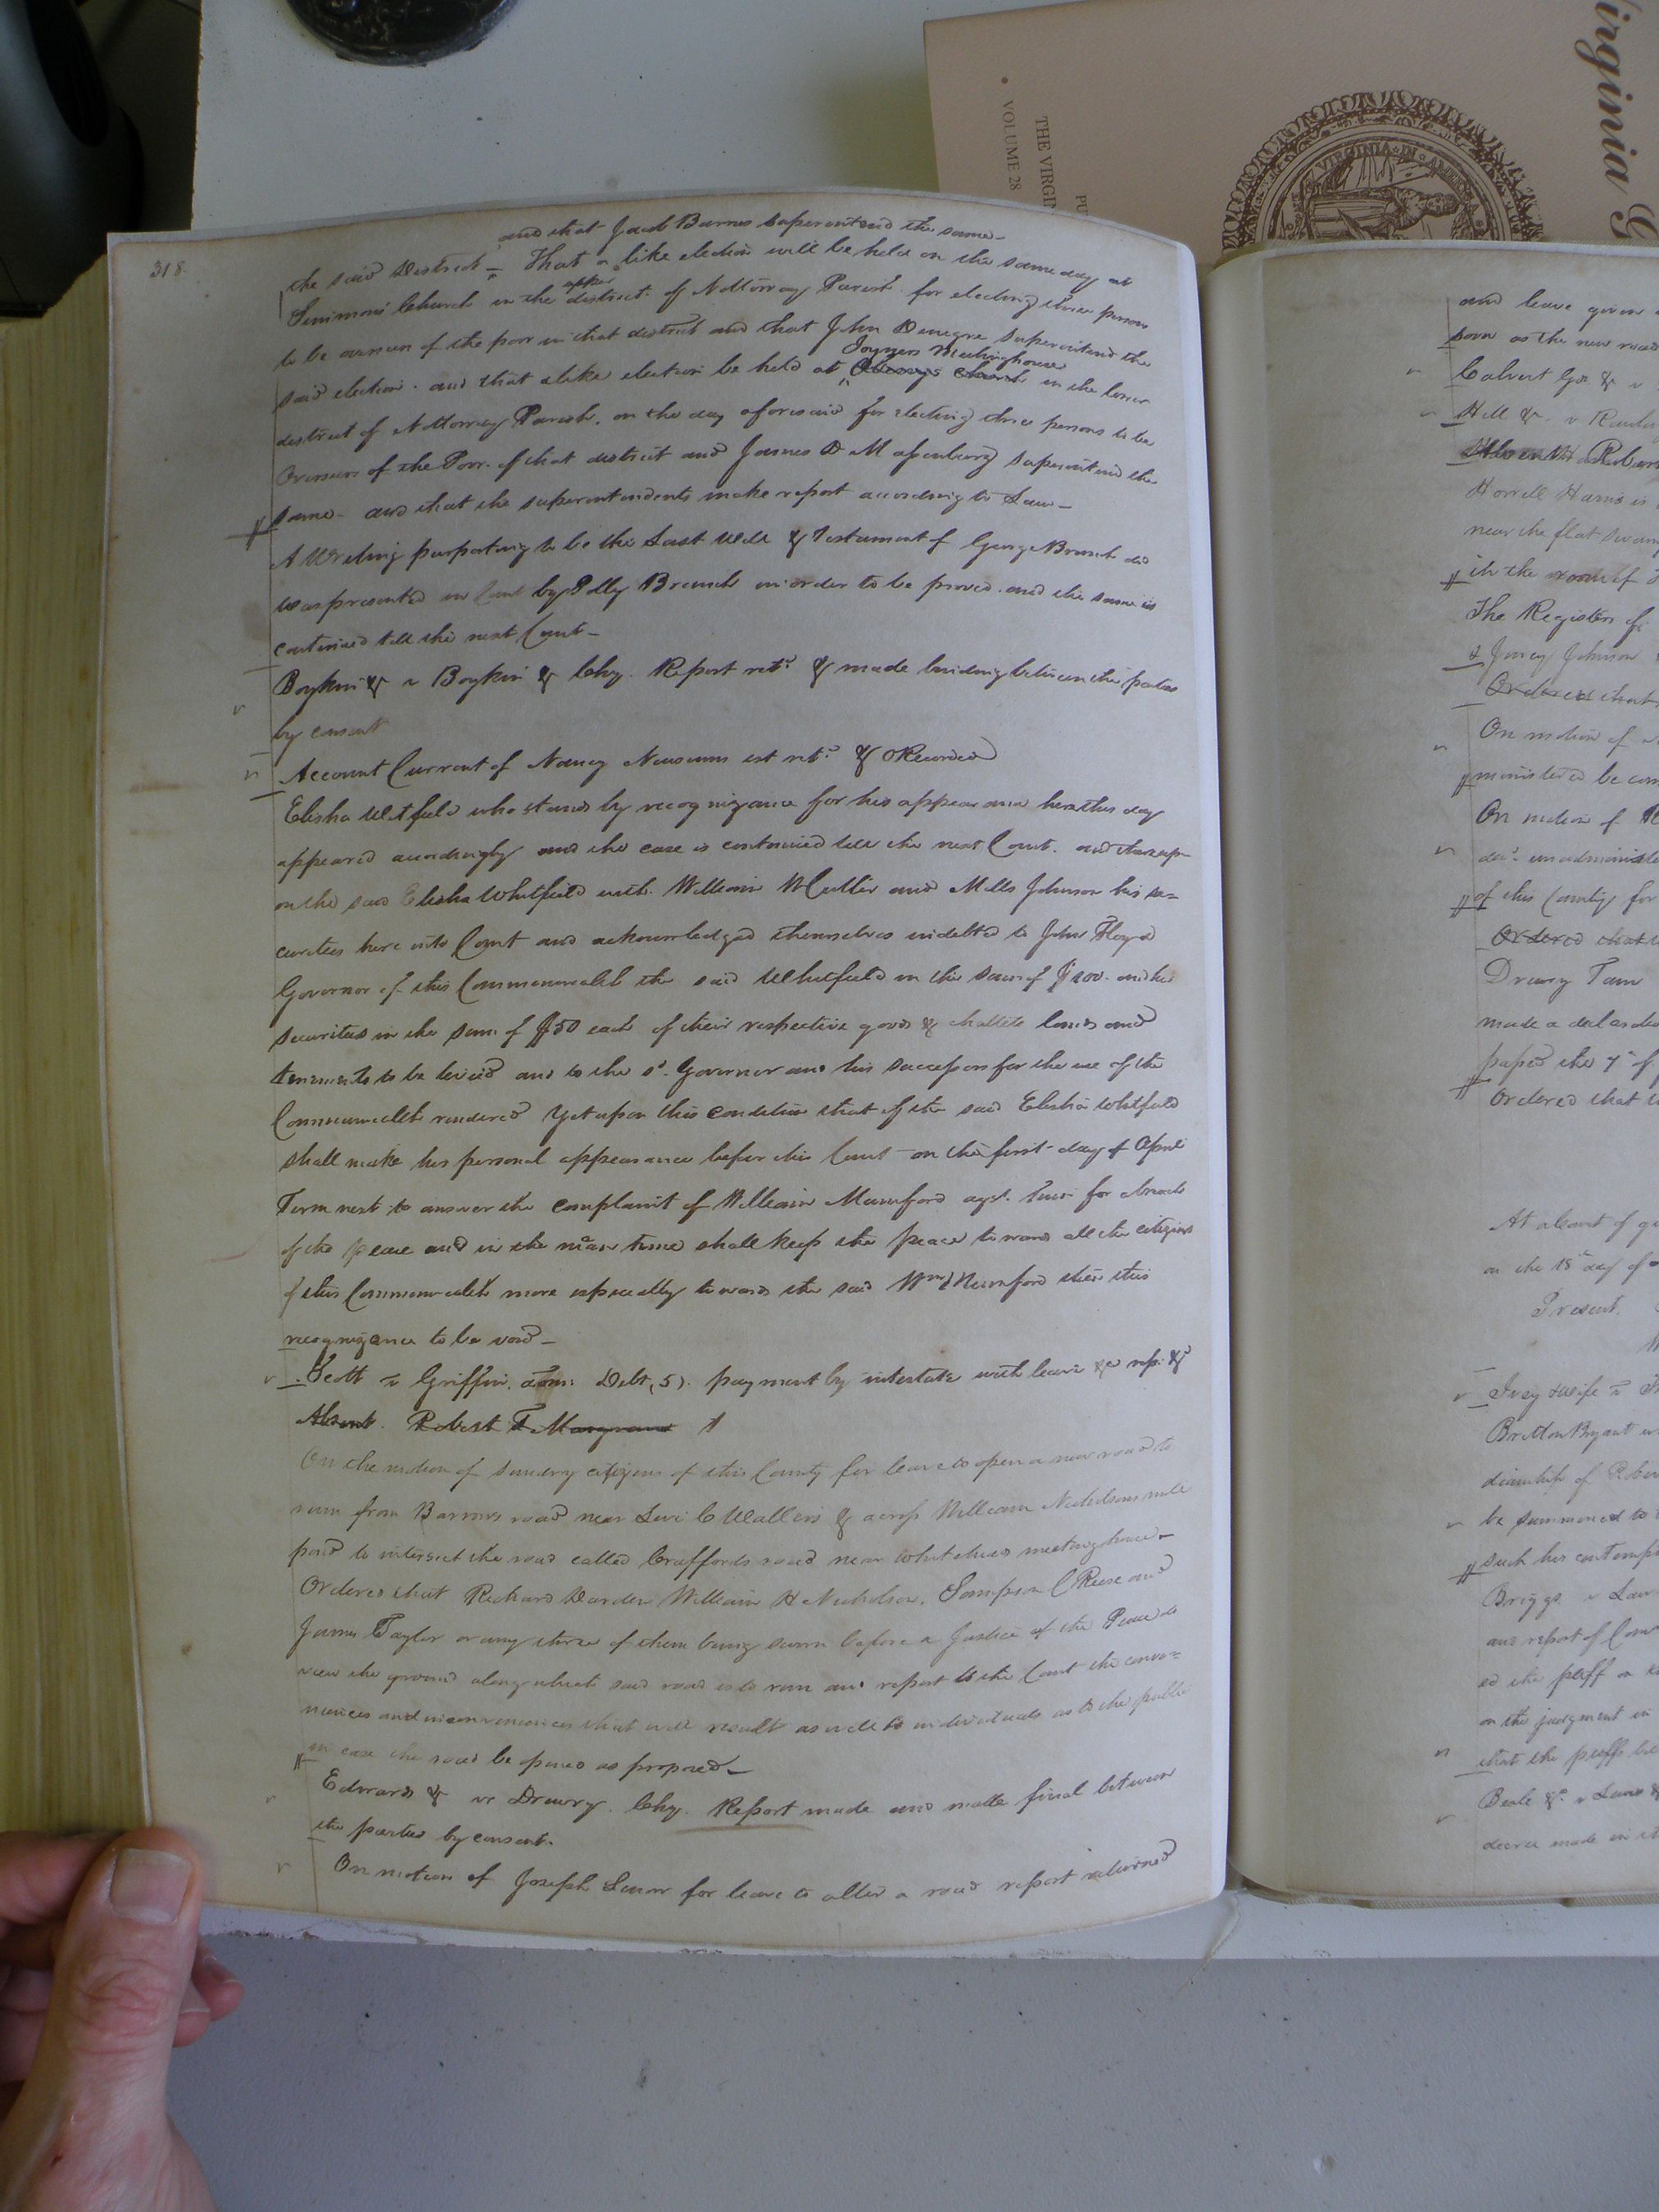 Virginia G
THE VIRGIN
VOLUME 28
PU
VIRGINIA IN
318
and that Jacob Barnes superintend the same-
the said District - That a like election will be held on the same day at
Simmons Church in the upper district of Nottoway Parish for electing three persons
to be overseers of the poor in that district and that John Denegre superintend the
Joyners Meetinghouse
said election. and that a like election be held at church in the lower
district of Nottoway Parish, on the day aforesaid for electing three persons to be
Overseers of the Poor of that district and James D Massenburg superintend the
same- and that the superintendents make report according to Law-
A Writing purporting to be the Last Will & Testament of George Branch decd
was presented in Court by Polly Branch in order to be proved. and the same is
continued till the next Court-
Boykin & v Boykin & Chy. Report retd & made binding between the parties
by consent
Account Current of Nancy Newsums est retd & Recorded
Elisha Whitfield who stands by recognizance for his appearance here this day
appeared accordingly and the case is continued till the next Court. and thereup-
on the said Elisha Whitfield with William and Mills Johnson his se-
curities here into Court and acknowledged themselves indebted to John Floyd
Governor of this Commonwealth the said Whitfield in the sum of $100. and his
securities in the sum of $50 each of their respective goods & chattels lands and
tenements to be levied and to the sd. Governor and his successors for the use of the
Commonwealth rendered Yet upon this condition that if the said Elisha Whitfield
shall make his personal appearance before this Court on the first day of April
Term next to answer the complaint of William Mumford agst. him for breach
of the peace and in the mean time shall keep the peace towards all the citizens
of this Commonwealth more especially towards the said Wm Mumford then this
recognizance to be void-
Scott v Griffin. adm: Debt, (5). payment by intestate with leave &c rep. &c
Absent. Robert
On the motion of sundry citizens of this County for leave to open a new road to
run from Barnes road near Levi C Wallers & across William Nicholsons mill
pond to intersect the road called Craffords road near Whiteheads meeting house-
Ordered that Richard Darden William H Nicholson, Sampson C Reese and
James Taylor or any three of them being sworn before a Justice of the Peace do
view the ground along which said road is to run and report to the Court the conve-
niences and inconveniences that will result as well to individuals as to the public
in case the road be opened as proposed-
Edwards & vs Drewry. Chy. Report made and made final between
the parties by consent.
On motion of Joseph for leave to alter a road report returned
and leave given
as the new road
Calvert Gdn & v
Hill &c. v
Horrell Harris is
near the flat swamp
in the room of
The Register of
& Johnson
Ordered that
On motion of
ministered be com
On motion of
decd unadministe
of this County for
Ordered that
Drewry Tann
made a declaration
passed the 7th of
Ordered that
At a Court of
on the 18th day of
Present.
Ivey & wife v
Britton Bryant
be summoned to
such his contempt
Briggs v
and report of Com
ed the plff
on the judgment in
that the plffs
Beale &c. v
decree made in